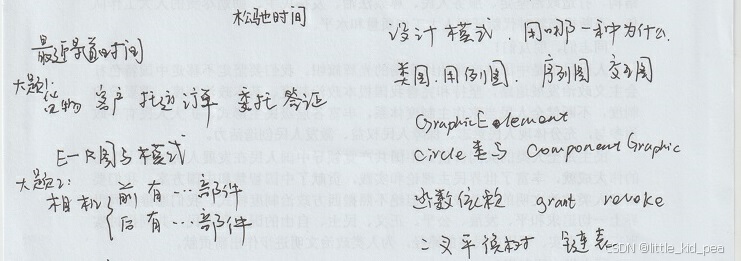 松弛时间
最迟最早时间
大题1:
证物 客户 托运订单 委托 签证
E-R图与模式
大题2:
相机 { 前有…部件
后有…部件
设计模式,用哪一种为什么
类图.用例图. 序列图 交互图
GraphicElement
Circle类与 ComponentGraphic
函数依赖 grant revoke
二叉平衡树 链表
CSDN @little_kid_pea